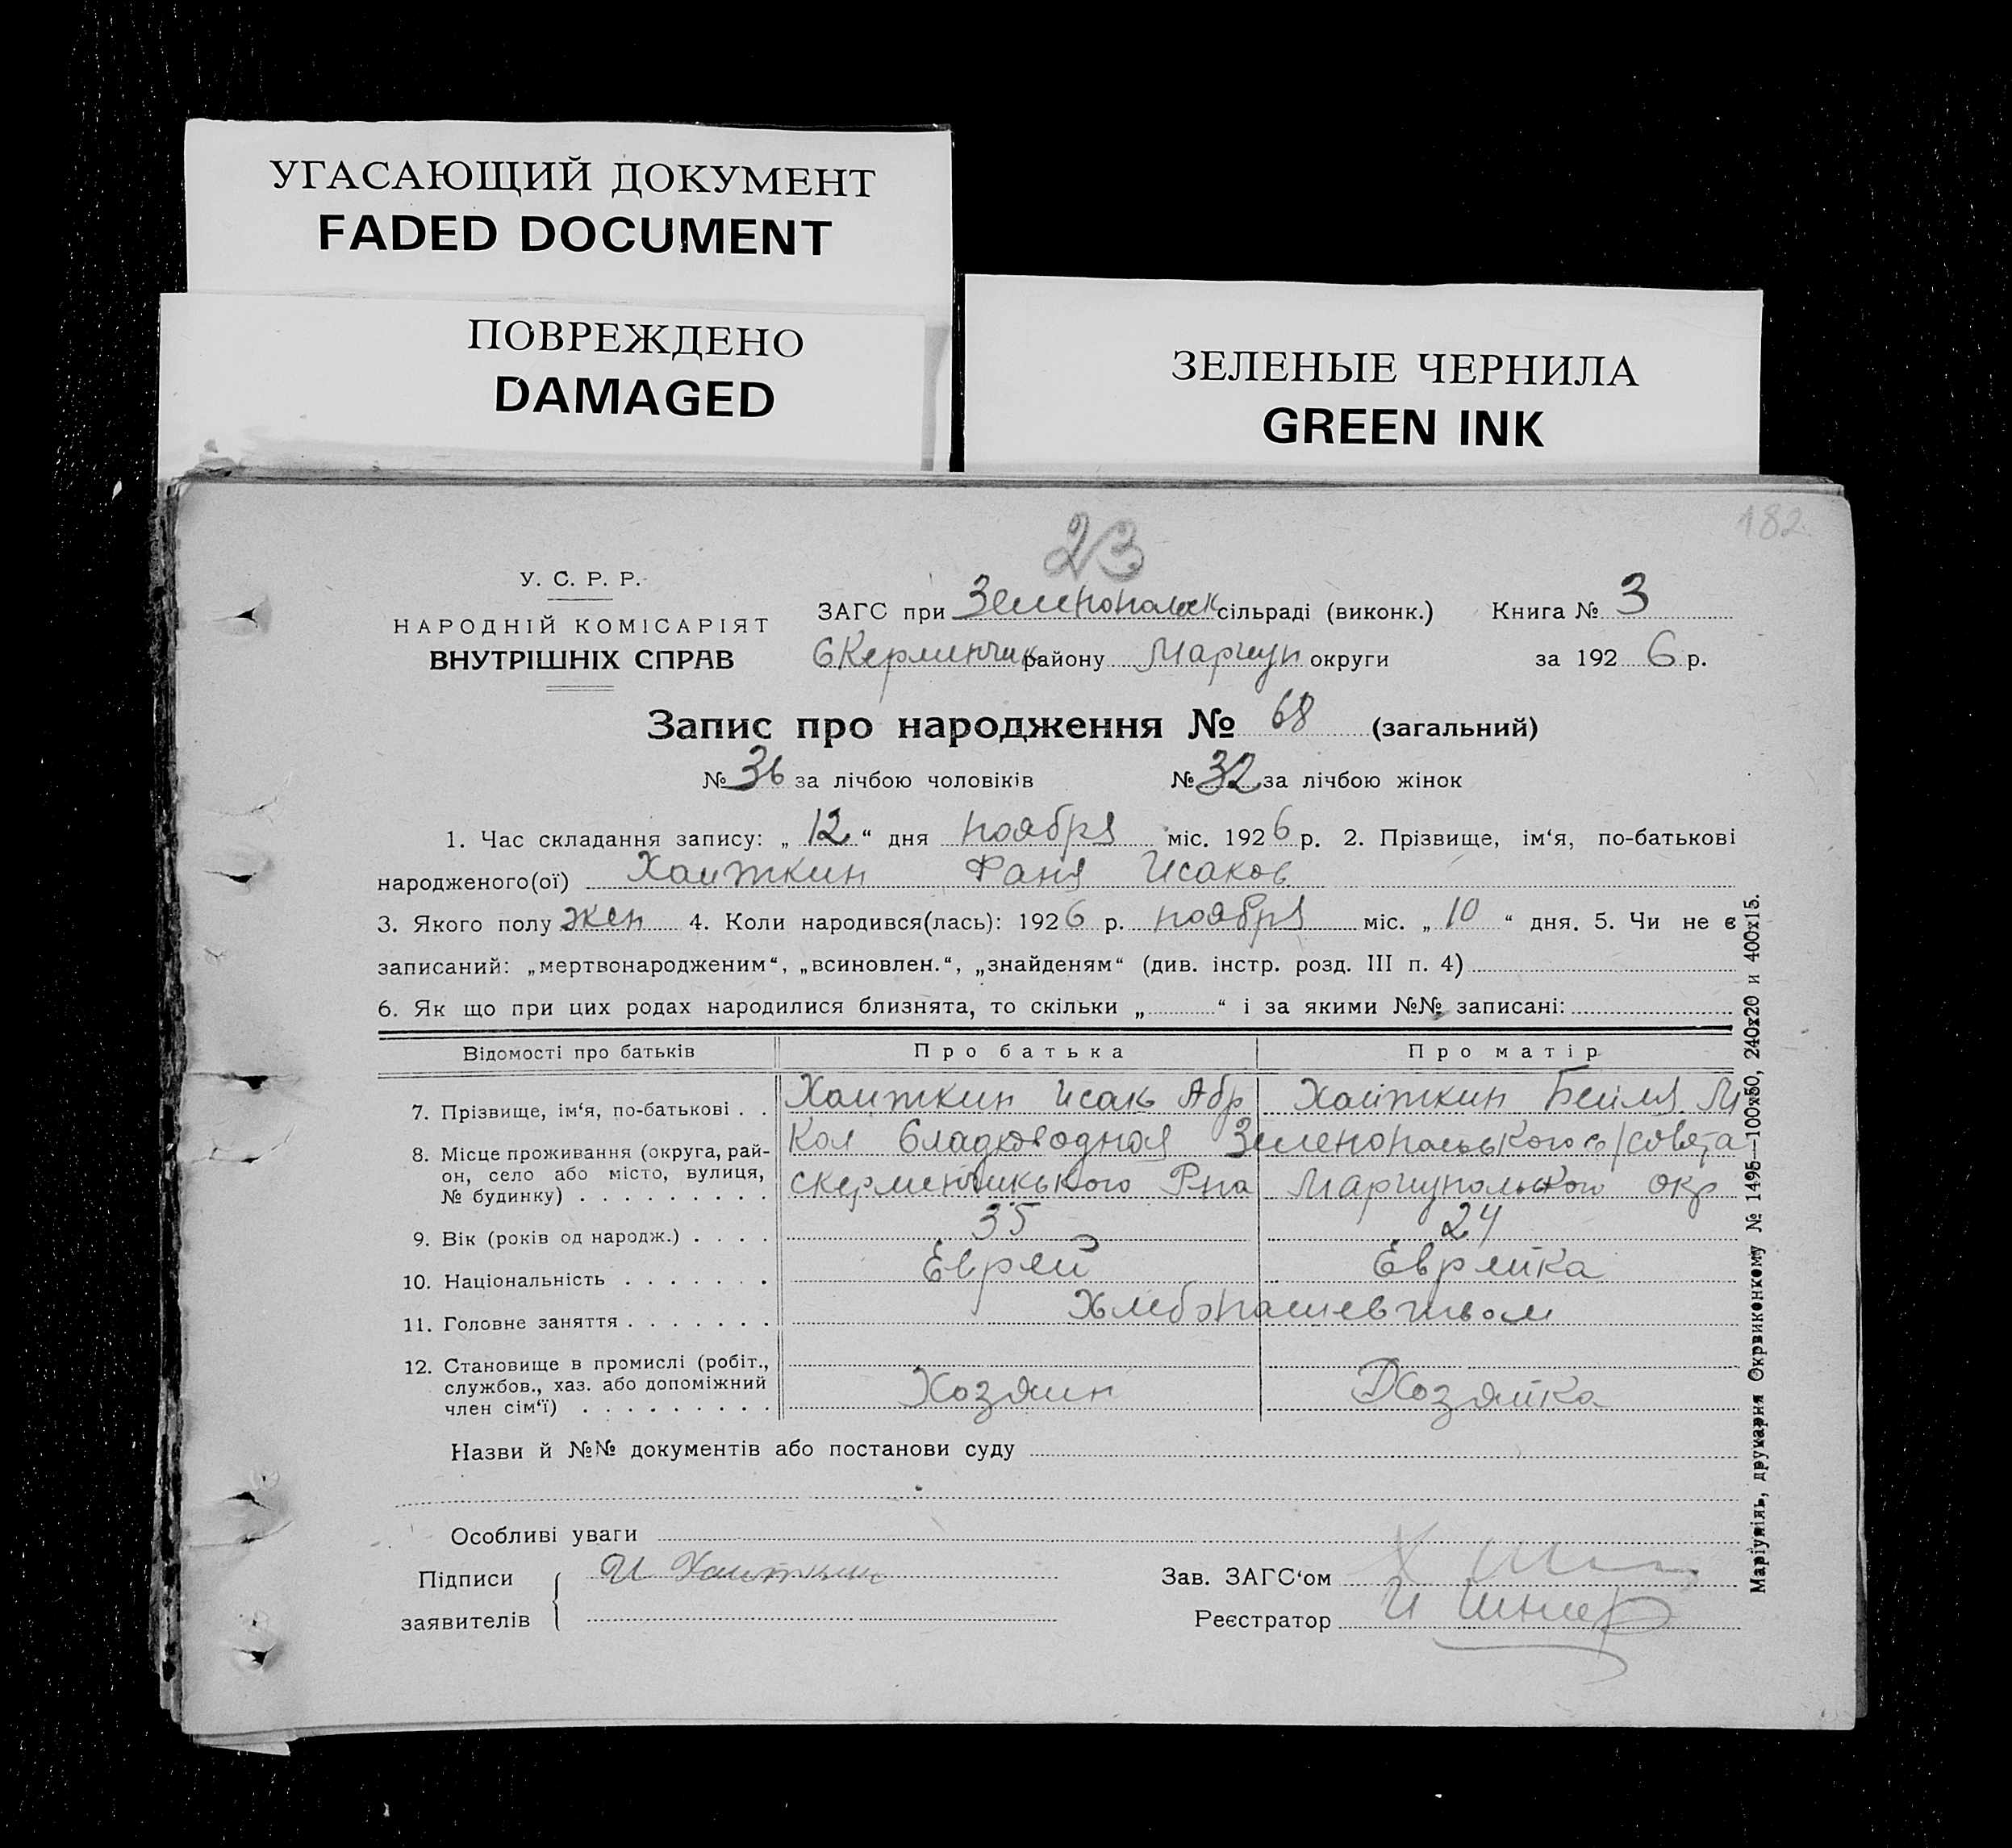 УГАСАЮЩИЙ ДОКУМЕНТ
FADED DOCUMENT
ПОВРЕЖДЕНО
DAMAGED
ЗЕЛЕНЫЕ ЧЕРНИЛА
GREEN INK
23
182
У. С. Р. Р.
НАРОДНІЙ КОМІСАРІЯТ
ВНУТРІШНІХ СПРАВ
ЗАГС при Зеленопольск сільраді (виконк.) Книга № 3
СКерменчик району Мариуп округи за 1926 р.
Запис про народження № 68 (загальний)
№ 36 за лічбою чоловіків № 32 за лічбою жінок
1. Час складання запису: „ 12 “ дня ноября міс. 1926 р. 2. Прізвище, ім‘я, по-батькові
народженого(ої) Хаиткин Фаня Исаков
3. Якого полу жен 4. Коли народився(лась): 1926 р. ноября міс. „ 10 “ дня. 5. Чи не є
записаний: „мертвонародженим“, „всиновлен.“, „знайденям“ (див. інстр. розд. III п. 4)
6. Як що при цих родах народилися близнята, то скільки „ “ і за якими №№ записані:
Відомості про батьків Про батька Про матір
7. Прізвище, ім‘я, по-батькові . . Хаиткин Исак Абр Хаиткин Бейля М
8. Місце проживання (округа, рай-он, село або місто, вулиця, № будинку) . . . . . . . . . Кол Сладководная Зеленопольского с/совета
скерменчикького Рна Мариупольского окр
9. Вік (років од народж.) . . . . 35 24
10. Національність . . . . . . . Еврей Еврейка
11. Головне заняття . . . . . . . Хлебопашевством
12. Становище в промислі (робіт., службов., хаз. або допоміжний член сім‘ї) . . . . . . . . . Хозяин Хозяйка
Назви й №№ документів або постанови суду
Особливі уваги
Підписи заявителів И Хаиткин
Зав. ЗАГС‘ом
Реєстратор И
Маріупіль, друкарня Окрвиконкому № 1495—100x50, 240x20 и 400x15.